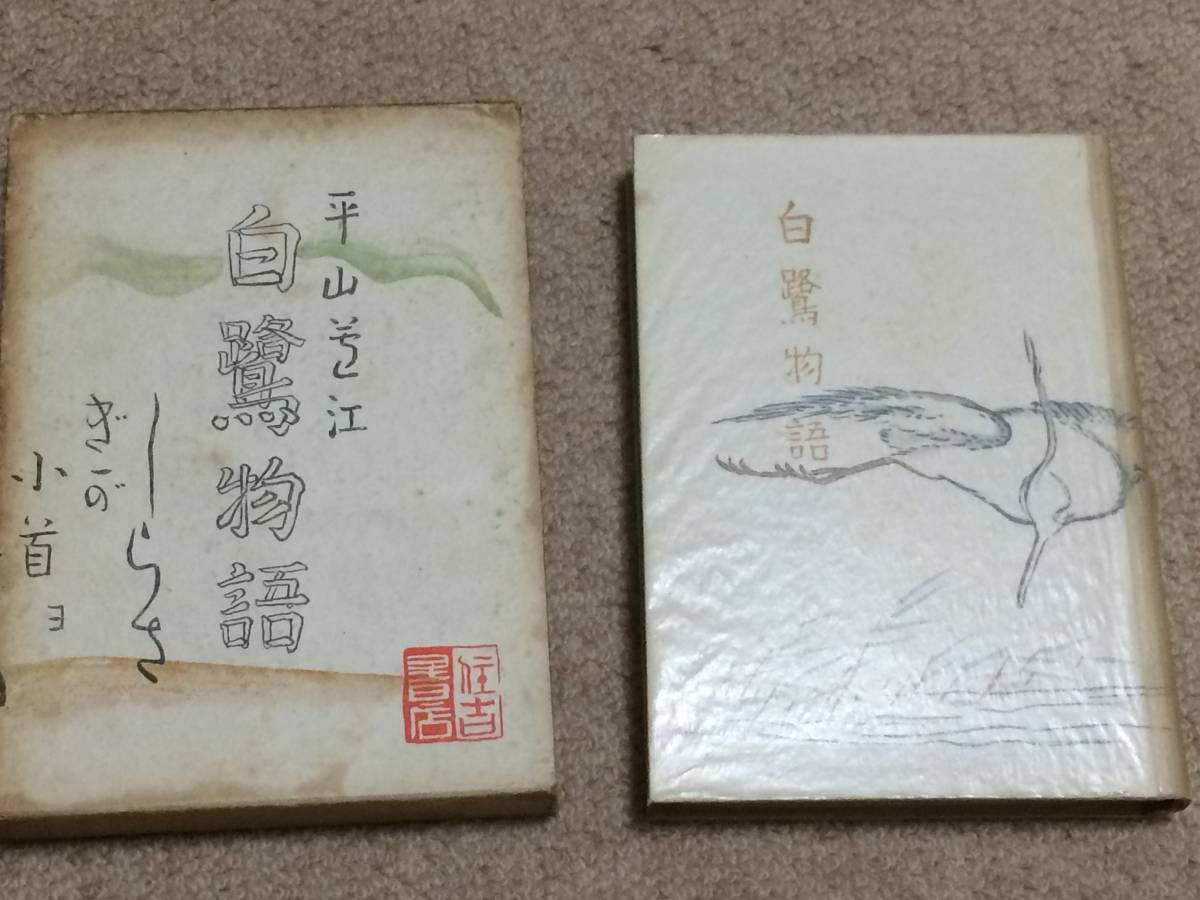 平山芦江
白鷺物語
しらさ
ぎごが
小首ヨ
住吉
書店
白鷺物語